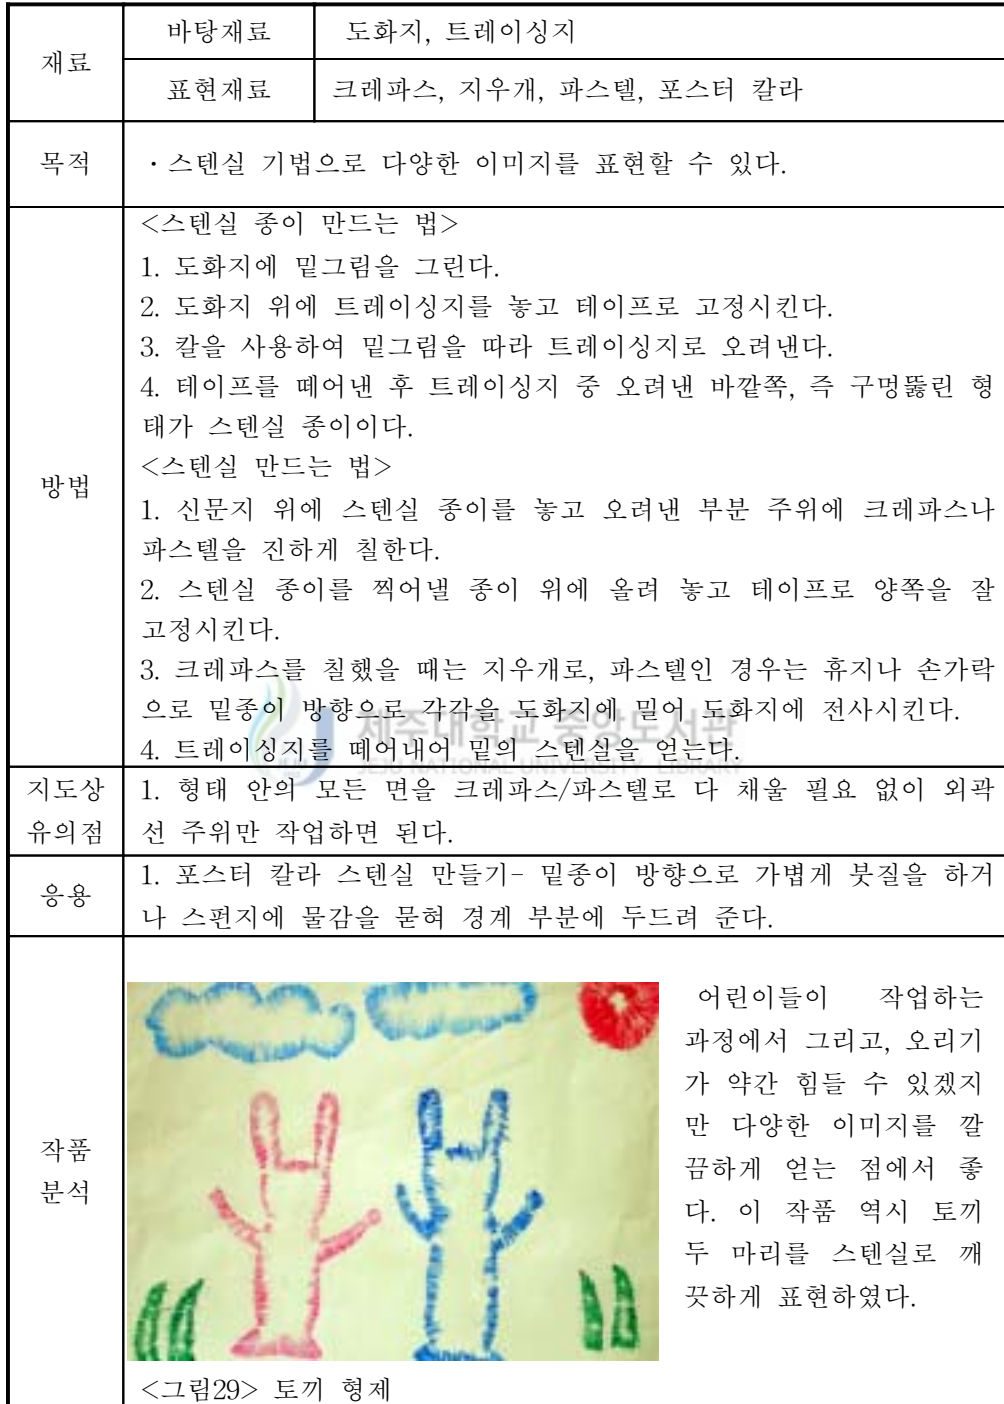 재료
바탕재료
도화지, 트레이싱지
표현재료
크레파스, 지우개, 파스텔, 포스터 칼라
목적
・스텐실 기법으로 다양한 이미지를 표현할 수 있다.
방법
<스텐실 종이 만드는 법>
1. 도화지에 밑그림을 그린다.
2. 도화지 위에 트레이싱지를 놓고 테이프로 고정시킨다.
3. 칼을 사용하여 밑그림을 따라 트레이싱지로 오려낸다.
4. 테이프를 떼어낸 후 트레이싱지 중 오려낸 바깥쪽, 즉 구멍뚫린 형
태가 스텐실 종이이다.
<스텐실 만드는 법>
1. 신문지 위에 스텐실 종이를 놓고 오려낸 부분 주위에 크레파스나
파스텔을 진하게 칠한다.
2. 스텐실 종이를 찍어낼 종이 위에 올려 놓고 테이프로 양쪽을 잘
고정시킨다.
3. 크레파스를 칠했을 때는 지우개로, 파스텔인 경우는 휴지나 손가락
으로 밑종이 방향으로 각각을 도화지에 밀어 도화지에 전사시킨다.
4. 트레이싱지를 떼어내어 밑의 스텐실을 얻는다.
제주대학교 중앙도서관
JEJU NATIONAL UNIVERSITY LIBRARY
지도상
유의점
1. 형태 안의 모든 면을 크레파스/파스텔로 다 채울 필요 없이 외곽
선 주위만 작업하면 된다.
응용
1. 포스터 칼라 스텐실 만들기- 밑종이 방향으로 가볍게 붓질을 하거
나 스펀지에 물감을 묻혀 경계 부분에 두드려 준다.
작품
분석
어린이들이 작업하는
과정에서 그리고, 오리기
가 약간 힘들 수 있겠지
만 다양한 이미지를 깔
끔하게 얻는 점에서 좋
다. 이 작품 역시 토끼
두 마리를 스텐실로 깨
끗하게 표현하였다.
<그림29> 토끼 형제